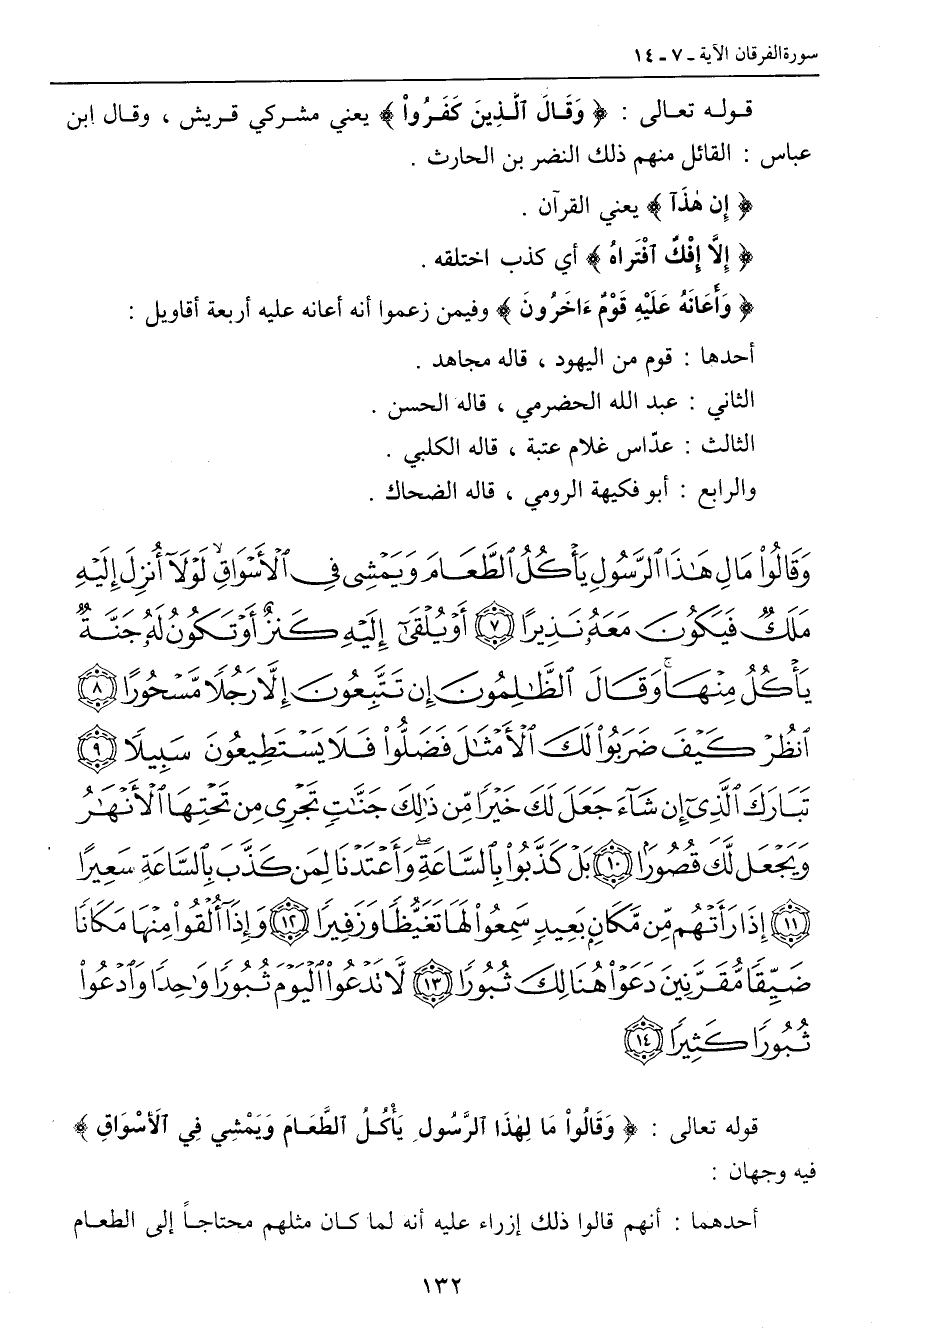 سورة الفرقان الآية ـ ٧ ـ ١٤
قوله تعالى : ﴿ وَقَالَ ٱلَّذِينَ كَفَرُواْ ﴾ يعني مشركي قريش ، وقال ابن
عباس : القائل منهم ذلك النضر بن الحارث .
﴿ إِن هٰذَآ ﴾ يعني القرآن .
﴿ إِلَّا إِفْكٌ ٱفْتَراهُ ﴾ أي كذب اختلقه .
﴿ وَأَعَانَهُ عَلَيْهِ قَوْمٌ ءَاخَرُونَ ﴾ وفيمن زعموا أنه أعانه عليه أربعة أقاويل :
أحدها : قوم من اليهود ، قاله مجاهد .
الثاني : عبد الله الحضرمي ، قاله الحسن .
الثالث : عدّاس غلام عتبة ، قاله الكلبي .
والرابع : أبو فكيهة الرومي ، قاله الضحاك .
وَقَالُواْ مَالِ هَٰذَا ٱلرَّسُولِ يَأۡكُلُ ٱلطَّعَامَ وَيَمۡشِي فِي ٱلۡأَسۡوَاقِ ۙ لَوۡلَآ أُنزِلَ إِلَيۡهِ
مَلَكٞ فَيَكُونَ مَعَهُۥ نَذِيرًا ٧ أَوۡ يُلۡقَىٰٓ إِلَيۡهِ كَنزٌ أَوۡ تَكُونُ لَهُۥ جَنَّةٞ
يَأۡكُلُ مِنۡهَاۚ وَقَالَ ٱلظَّٰلِمُونَ إِن تَتَّبِعُونَ إِلَّا رَجُلٗا مَّسۡحُورًا ٨
ٱنظُرۡ كَيۡفَ ضَرَبُواْ لَكَ ٱلۡأَمۡثَٰلَ فَضَلُّواْ فَلَا يَسۡتَطِيعُونَ سَبِيلٗا ٩
تَبَارَكَ ٱلَّذِيٓ إِن شَآءَ جَعَلَ لَكَ خَيۡرٗا مِّن ذَٰلِكَ جَنَّٰتٖ تَجۡرِي مِن تَحۡتِهَا ٱلۡأَنۡهَٰرُ
وَيَجۡعَل لَّكَ قُصُورَۢا ١٠ بَلۡ كَذَّبُواْ بِٱلسَّاعَةِۖ وَأَعۡتَدۡنَا لِمَن كَذَّبَ بِٱلسَّاعَةِ سَعِيرًا
١١ إِذَا رَأَتۡهُم مِّن مَّكَانِۭ بَعِيدٖ سَمِعُواْ لَهَا تَغَيُّظٗا وَزَفِيرٗا ١٢ وَإِذَآ أُلۡقُواْ مِنۡهَا مَكَانٗا
ضَيِّقٗا مُّقَرَّنِينَ دَعَوۡاْ هُنَالِكَ ثُبُورٗا ١٣ لَّا تَدۡعُواْ ٱلۡيَوۡمَ ثُبُورٗا وَٰحِدٗا وَٱدۡعُواْ
ثُبُورٗا كَثِيرٗا ١٤
قوله تعالى : ﴿ وَقَالُواْ مَا لِهٰذَا ٱلرَّسُولِ يَأْكُلُ ٱلطَّعَامَ وَيَمْشِي فِي ٱلأَسْوَاقِ ﴾
فيه وجهان :
أحدهما : أنهم قالوا ذلك إزراء عليه أنه لما كان مثلهم محتاجاً إلى الطعام
١٣٢